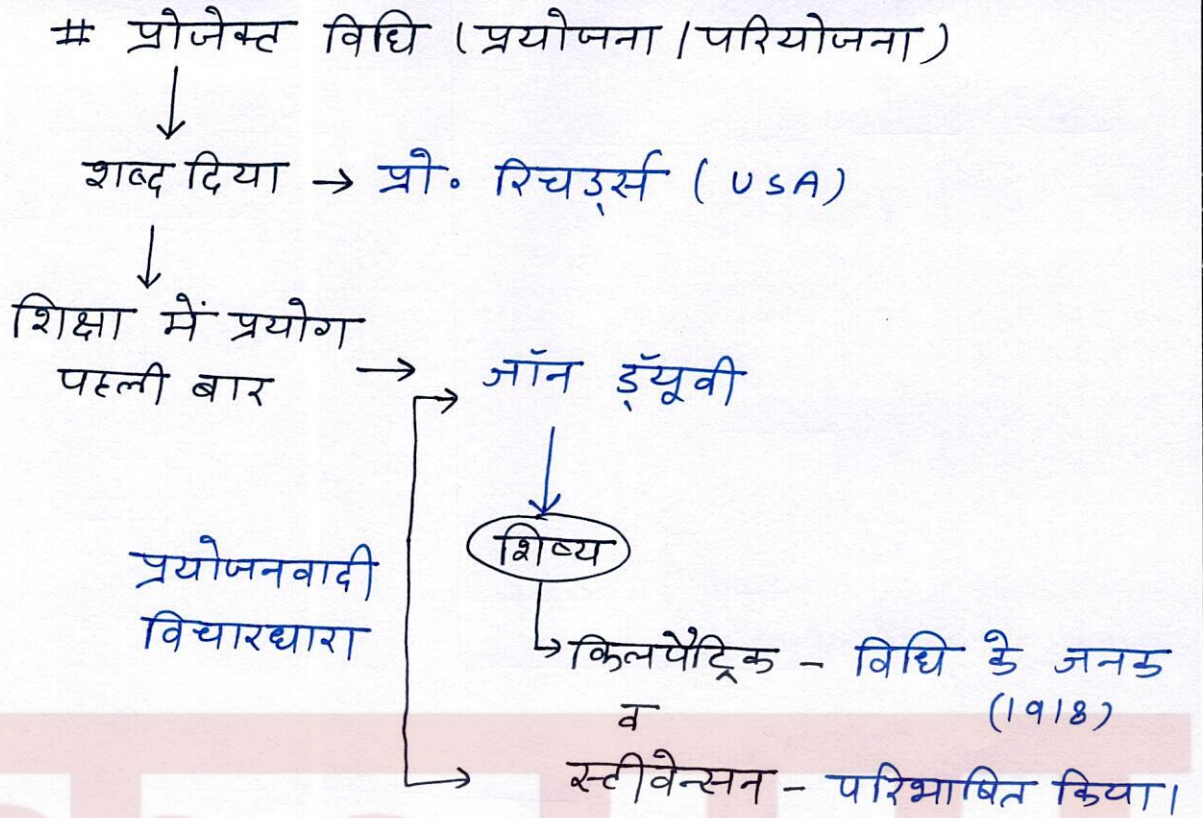 # प्रोजेक्ट विधि (प्रयोजना / परियोजना)
शब्द दिया → प्रो. रिचर्ड्स (USA)
शिक्षा में प्रयोग
पहली बार → जॉन ड्यूवी
शिष्य
प्रयोजनवादी
विचारधारा
किलपैट्रिक - विधि के जनक
(1918)
व
स्टीवेन्सन - परिभाषित किया।